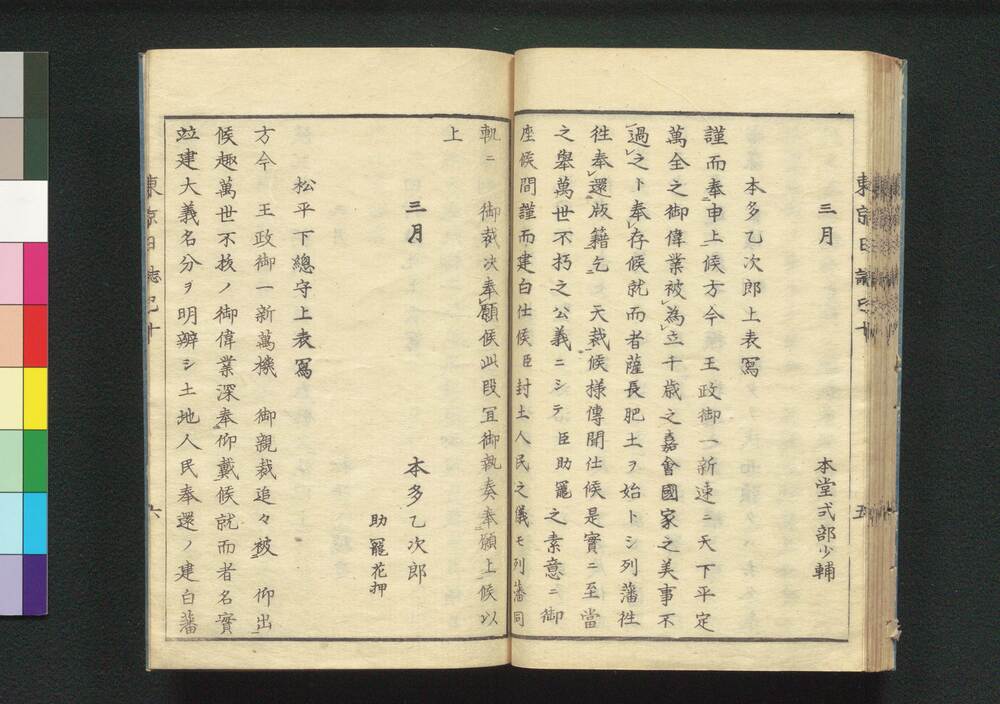 三月
本堂式部少輔
本多乙次郎上表寫
謹而奉申上候方今　王政御一新速ニ天下平定
萬全之御偉業被為立千歳之嘉會國家之美事不
過之ト奉存候就而者薩長肥土ヲ始トシ列藩徃
徃奉還版籍乞　天裁候様傳聞仕候是實ニ至當
之舉萬世不朽之公義ニシテ臣助寵之素意ニ御
座候間謹而建白仕候臣封土人民之儀モ列藩同
軌ニ　御裁决奉願候此段冝御執奏奉願上候以
上
三月
本多乙次郎
助寵花押
松平下總守上表寫
方今　王政御一新萬機　御親裁追々被　仰出
候趣萬世不拔ノ御偉業深奉仰戴候就而者名實
竝建大義名分ヲ明辨シ土地人民奉還ノ建白藩
東京日誌
五
六